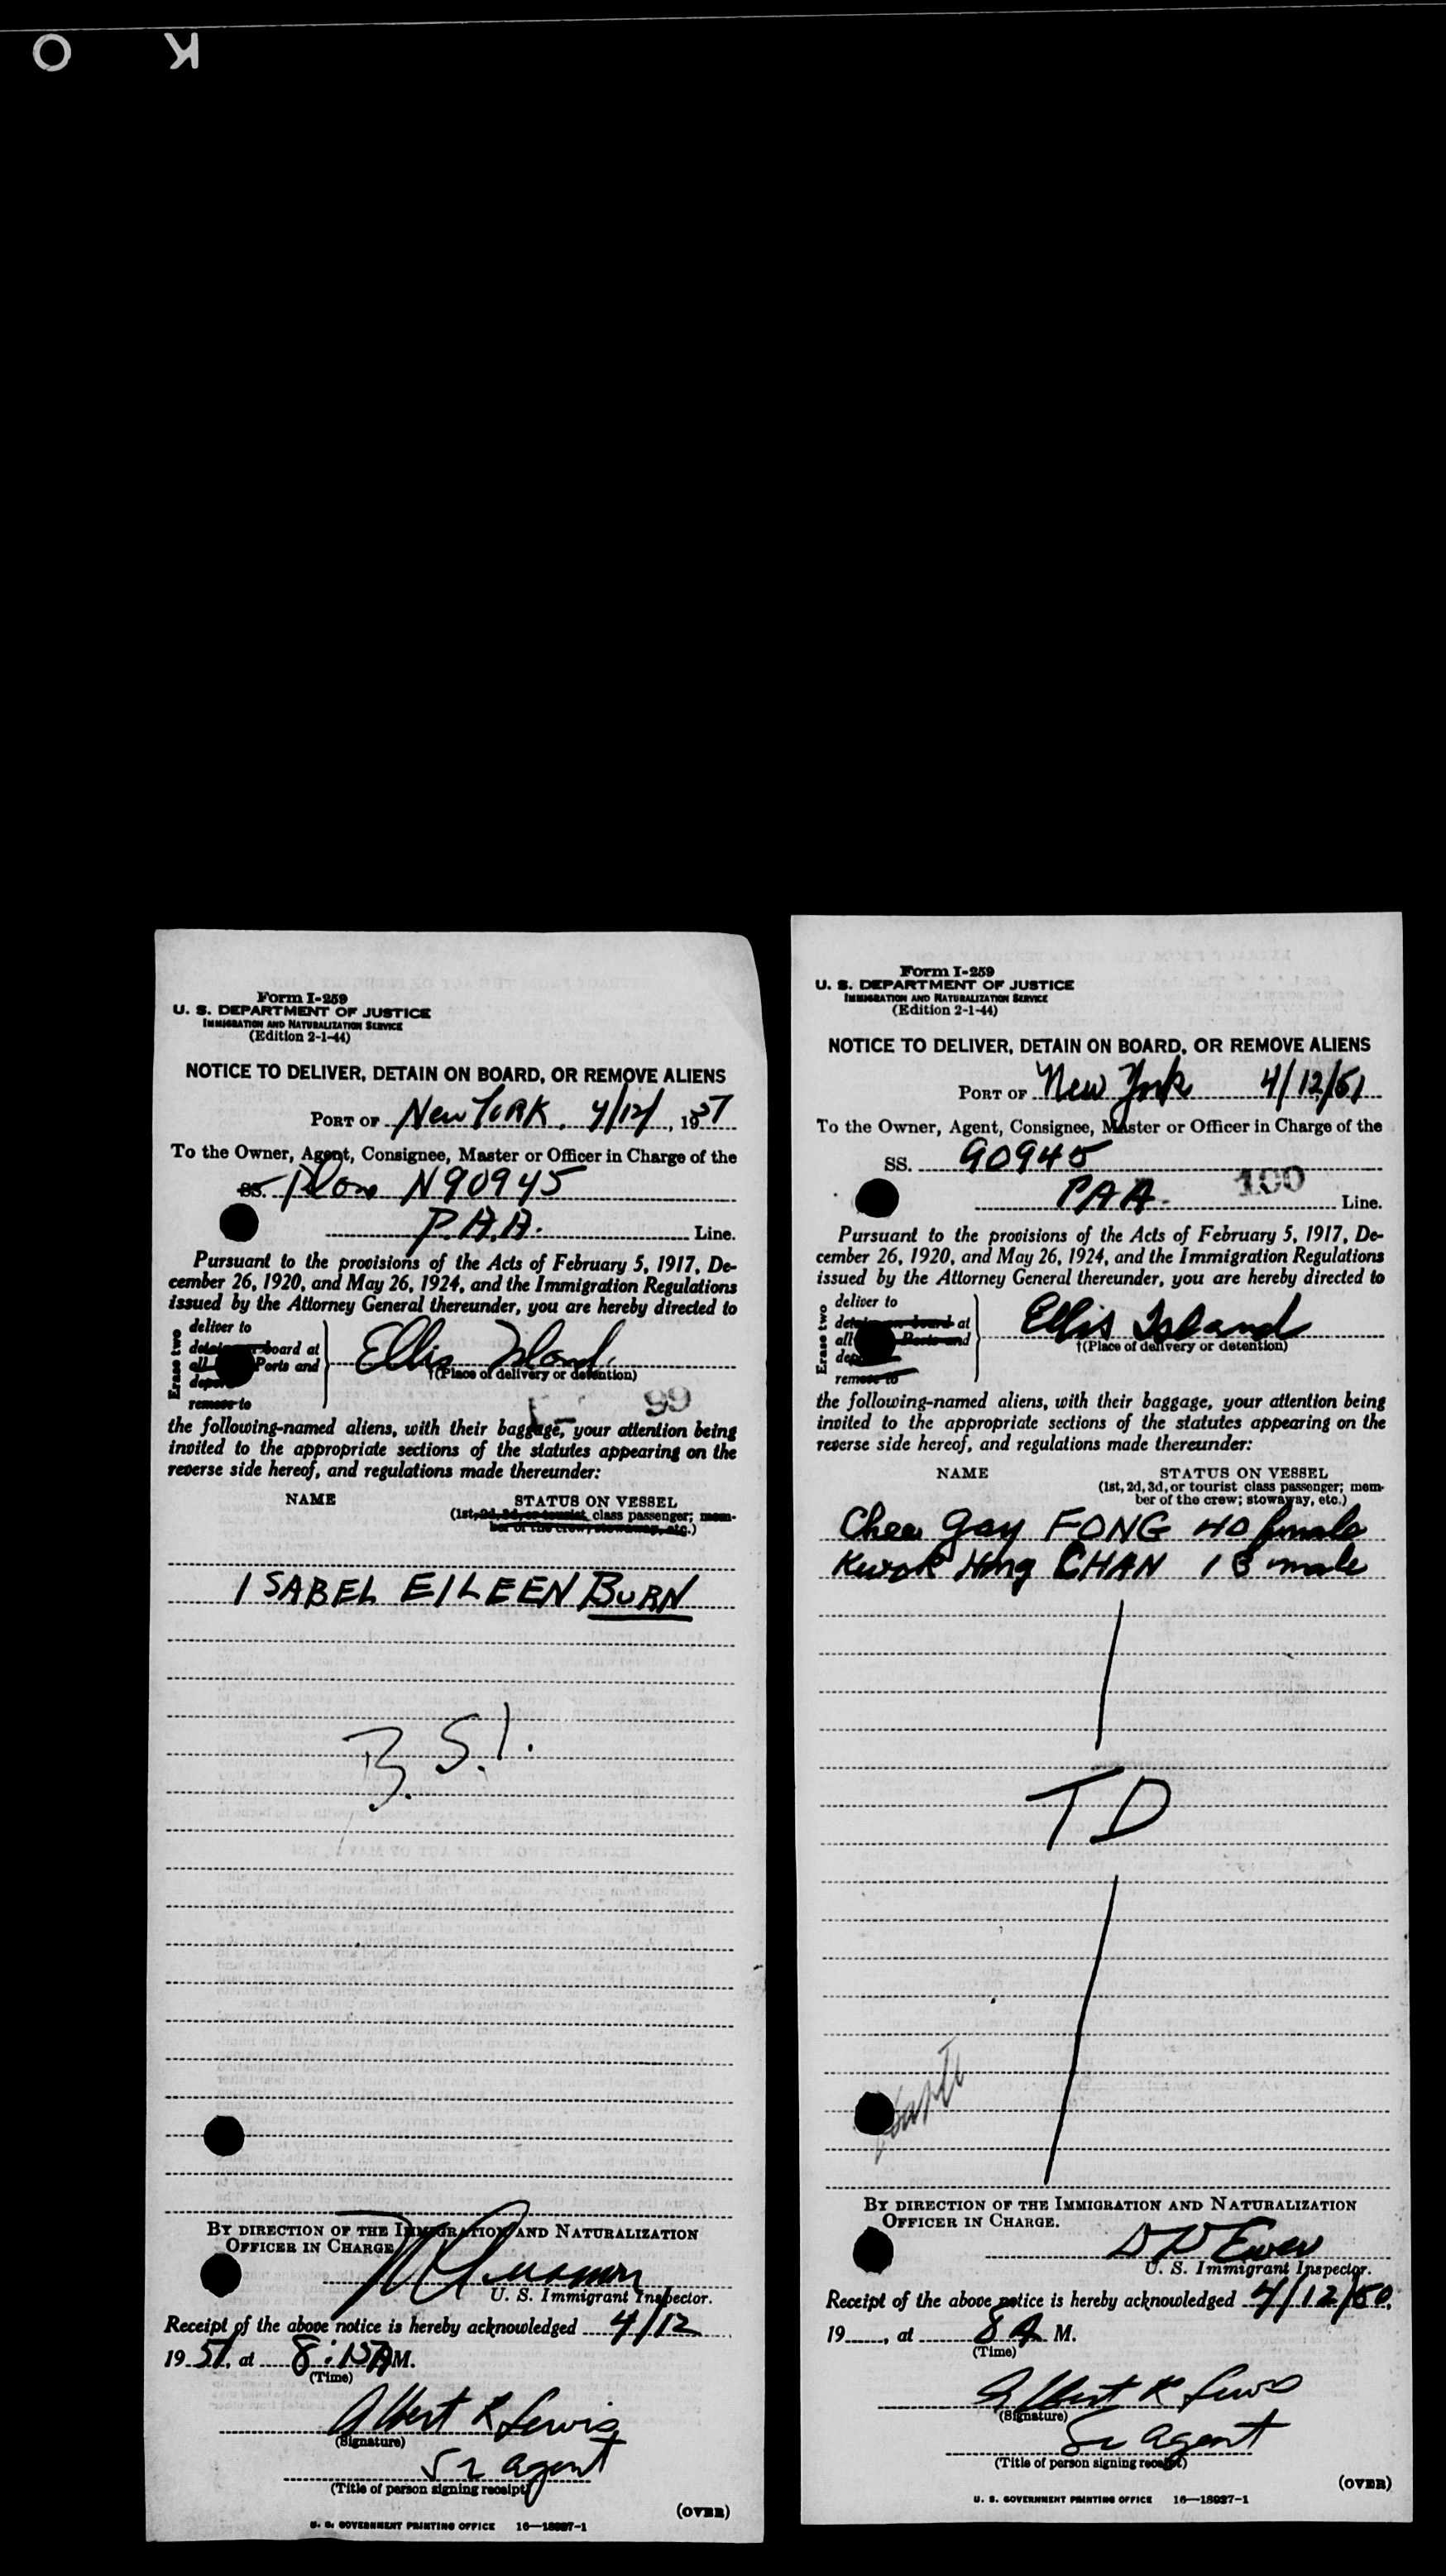 O K
Form I-259
U. S. DEPARTMENT OF JUSTICE
IMMIGRATION AND NATURALIZATION SERVICE
(Edition 2-1-44)
NOTICE TO DELIVER, DETAIN ON BOARD, OR REMOVE ALIENS
PORT OF New YORK, 4/12/, 1951
To the Owner, Agent, Consignee, Master or Officer in Charge of the
SS. Plane N90945
P.A.A. Line.
Pursuant to the provisions of the Acts of February 5, 1917, De-
cember 26, 1920, and May 26, 1924, and the Immigration Regulations
issued by the Attorney General thereunder, you are hereby directed to
Erase two
deliver to
board at
all Ports and
remove to
Ellis Island.
†(Place of delivery or detention)
99
the following-named aliens, with their baggage, your attention being
invited to the appropriate sections of the statutes appearing on the
reverse side hereof, and regulations made thereunder:
NAME STATUS ON VESSEL
(1st, 2d, 3d, or tourist class passenger; mem-
ber of the crew; stowaway, etc.)
ISABEL EILEEN BURN
B.S.I.
BY DIRECTION OF THE IMMIGRATION AND NATURALIZATION
OFFICER IN CHARGE
U. S. Immigrant Inspector.
Receipt of the above notice is hereby acknowledged 4/12
1951, at 8:15 A M.
(Time)
Albert K Lewis
(Signature)
Sr agent
(Title of person signing receipt)
(OVER)
U. S. GOVERNMENT PRINTING OFFICE 16—18937-1
Form I-259
U. S. DEPARTMENT OF JUSTICE
IMMIGRATION AND NATURALIZATION SERVICE
(Edition 2-1-44)
NOTICE TO DELIVER, DETAIN ON BOARD, OR REMOVE ALIENS
PORT OF New York 4/12/51
To the Owner, Agent, Consignee, Master or Officer in Charge of the
SS. 90945
PAA 100 Line.
Pursuant to the provisions of the Acts of February 5, 1917, De-
cember 26, 1920, and May 26, 1924, and the Immigration Regulations
issued by the Attorney General thereunder, you are hereby directed to
Erase two
deliver to
on board at
all Ports and
remove to
Ellis Island
†(Place of delivery or detention)
the following-named aliens, with their baggage, your attention being
invited to the appropriate sections of the statutes appearing on the
reverse side hereof, and regulations made thereunder:
NAME STATUS ON VESSEL
(1st, 2d, 3d, or tourist class passenger; mem-
ber of the crew; stowaway, etc.)
Chee Gay FONG 40 female
Kwok Hing CHAN 13 male
TD
BY DIRECTION OF THE IMMIGRATION AND NATURALIZATION
OFFICER IN CHARGE.
U. S. Immigrant Inspector.
Receipt of the above notice is hereby acknowledged 4/12/50,
19 , at 8 A M.
(Time)
Albert K Lewis
(Signature)
Sr agent
(Title of person signing receipt)
(OVER)
U. S. GOVERNMENT PRINTING OFFICE 16—18937-1